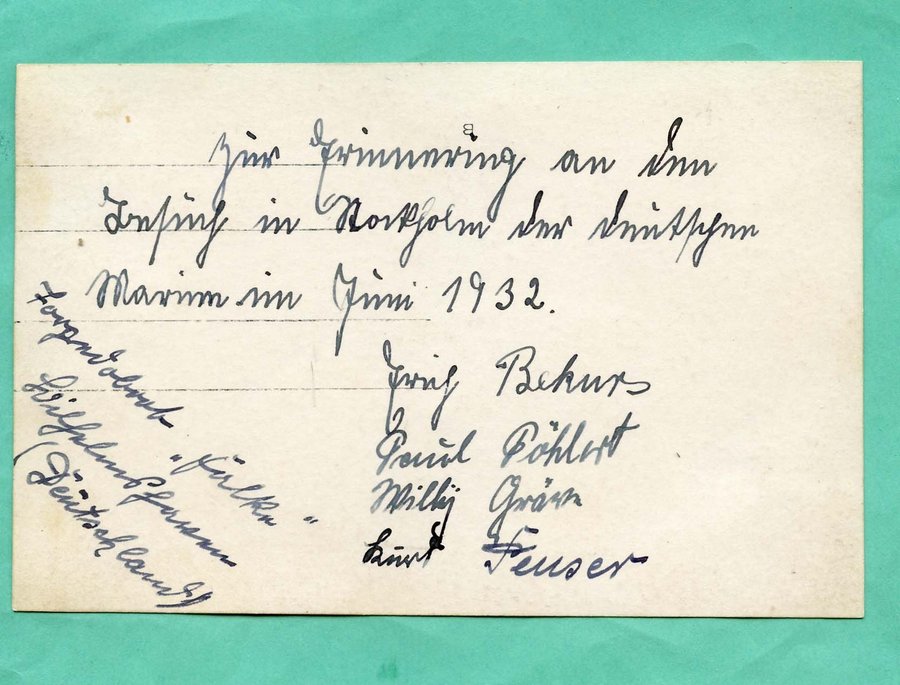 Zur Erinnerung an den
Besuch in Stockholm der deutschen
Marine im Juni 1932.
Erich Bekurs
Paul Pöhlert
Willy Gräve
Kurt Feuser
Torpedoboot "Falke"
Wilhelmshaven
(Deutschland)